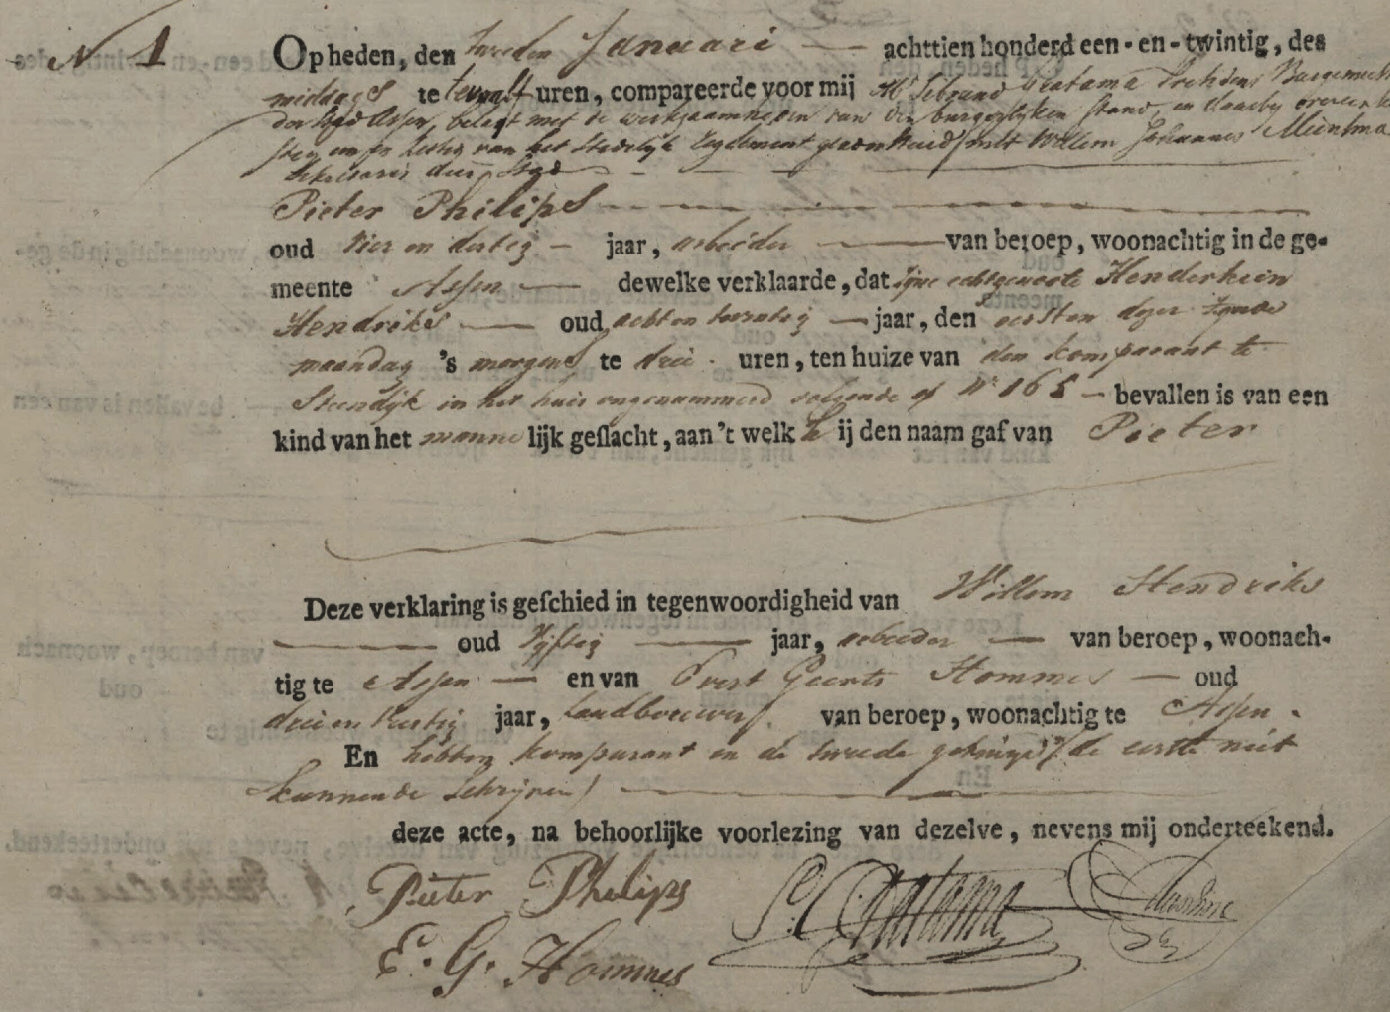 N 1
Op heden, den tweeden Januari achttien honderd een-en-twintig, des
middags te twaalf uren, compareerde voor mij Mr Sebrand Gratama President Burgemeester
der Stad Assen, belast met de werkzaamheden van den burgerlijken stand, en daarbij overeenkom
van het Stedelijk Reglement geadsisteerd met Willem Johannes Muntinga
Sekretaris dier Stad
Pieter Philips
oud vier en dertig jaar, arbeider van beroep, woonachtig in de ge-
meente Assen dewelke verklaarde, dat zijne echtgenoote Henderkien
Hendriks oud acht en twintig jaar, den eersten dezer zijnde
maandag 's morgens te drie uren, ten huize van den komparant te
Steendijk in het huis ongenummerd volgende op No 165 bevallen is van een
kind van het mannelijk geslacht, aan 't welk hij den naam gaf van Pieter
Deze verklaring is geschied in tegenwoordigheid van Willem Hendriks
oud vijftig jaar, arbeider van beroep, woonach-
tig te Assen en van Evert Geerts Hommes oud
drie en veertig jaar, Landbouwer van beroep, woonachtig te Assen.
En hebben komparant en de tweede getuige (de eerste niet
kunnende schrijven)
deze acte, na behoorlijke voorlezing van dezelve, nevens mij onderteekend.
Pieter Philips S. Gratama
E. G. Hommes